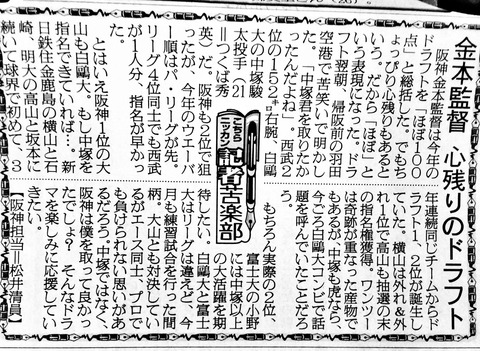 金本監督 心残りのドラフト
阪神金本監督は今年の
ドラフトを「ほぼ100
点」と総括した。でもち
ょっぴり心残りもあると
いう。だから「ほぼ」と
いう表現になった。ドラ
フト翌朝、帰阪前の羽田
空港で苦笑いで明かし
た。「中塚君を取りたか
ったんだよね」。西武2
位の152㌔右腕、白鴎
大の中塚駿
太投手(21
=つくば秀
英)だ。阪神も2位で狙
ったが、今年のウエーバ
ー順はパ・リーグが先。
リーグ4位同士でも西武
が1人分、指名が早かっ
た。
とはいえ阪神1位の大
山も白鴎大。もし中塚を
指名できていれば…新
日鉄住金鹿島の横山と石
崎、明大の高山と坂本に
続いて球界で初めて、3
年連続同じチームからド
ラフト1、2位が誕生し
ていた。横山は外れ&外
れ1位で高山も抽選の末
の指名権獲得。ワンツー
は奇跡が重なった産物で
もあるが、中塚も虎なら、
今ごろ白鴎大コンビで話
題を呼んでいたことだろ
う。
もちろん実際の2位、
富士大の小野
には中塚以上
の大活躍を期
待したい。白鴎大と富士
大はリーグは違えど、今
月も練習試合を行った間
柄。大山とも対決してい
るがエース同士、プロで
も負けられない思いがあ
るだろう。中塚ではなく、
阪神は僕を取って良かっ
たでしょ？ そんなドラ
マを楽しみに応援してい
きたい。
【阪神担当=松井清員】
こちら
ニッカン